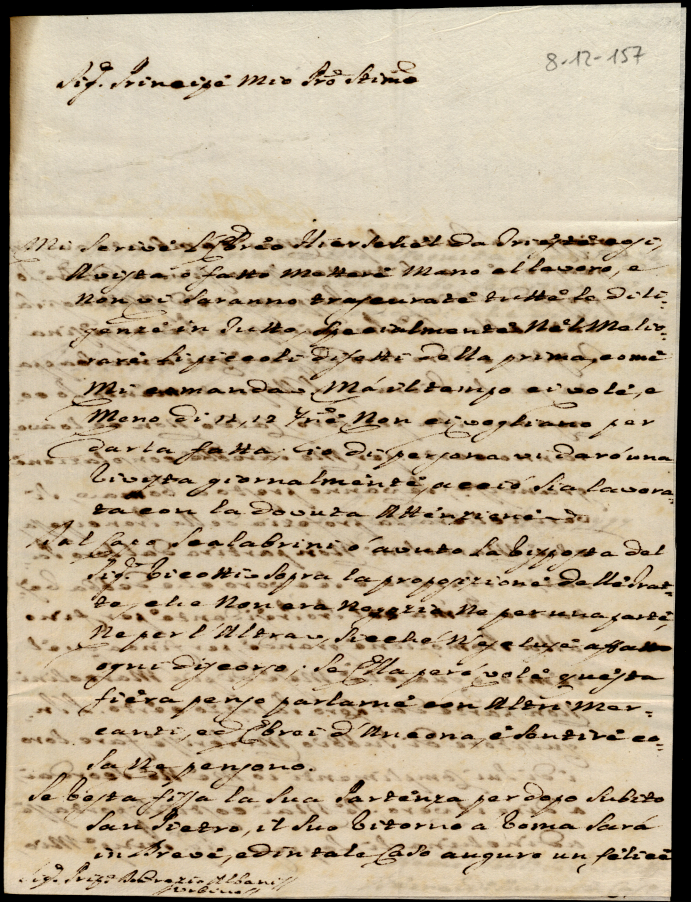 8-12-157
Sig.r Principe mio Pro Stimo
Mi scrive l'Ebreo Herschel da Trieste, così
à vista ò fatto mettere mano al lavoro, e
non vi saranno trascurate tutte le dili-
genze in tutto, specialmente nel melio-
rare li piccoli difetti della prima, come
mi comanda. Mà il tempo ci vole, e
meno di 11, 12 non ci vogliano per
darla fatta. Io di persona vi darò una
rivista giornalmente acciò sia lavora-
ta con la dovuta attenzione.
Dal Scalabrini ò avuto la risposta del
Sig.r Ricotti sopra la proposizione delle Trat-
te, che non era negozio ne per una parte
ne per l'altra, sicchè si escluse affatto
ogni discorso; se Ella però vole questa
fiera penso parlarne con altri Mer-
canti, ed Ebrei d'Ancona, e sentire co-
sa ne pensono.
Se resta fissa la sua Partenza per dopo subito
San Pietro, il suo ritorno a Roma sarà
in breve, ed in tale caso auguro un felice
Sig.r Prip.e D. Orazio Albani
Urbino